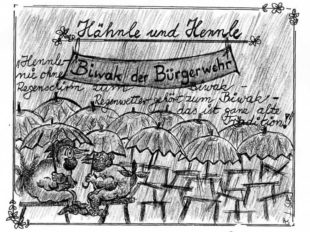 Hähnle und Hennle
Biwak der Bürgerwehr
"Hennle
nie ohne
Regenschirm zum Biwak -
Regenwetter gehört zum Biwak -
das ist ganz alte
Tradition!"